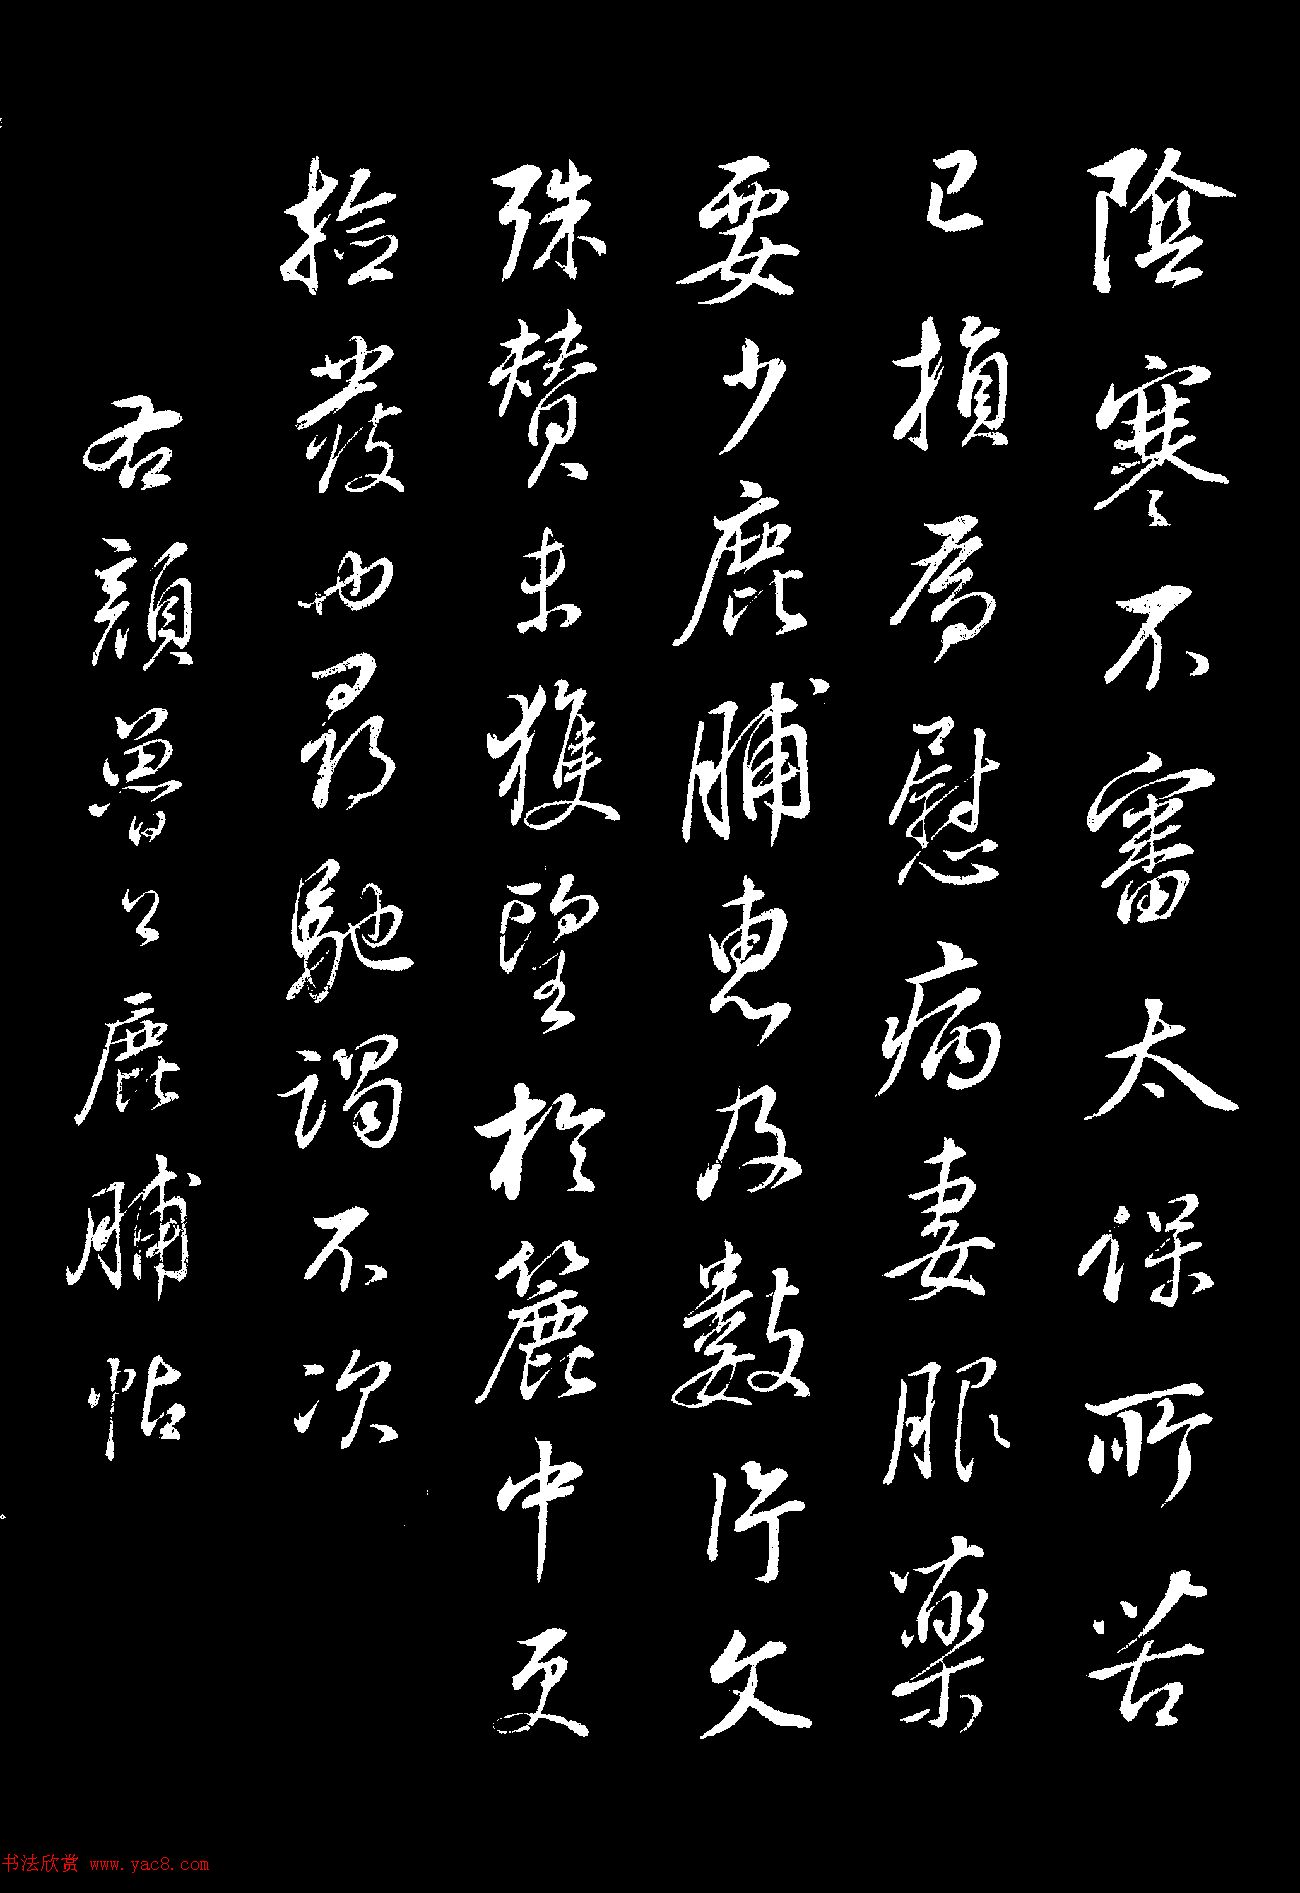 陰寒不審太保所苦
已損爲慰病妻服藥
要少鹿脯惠及數片文
殊贊未獲望於簏中更
撿發也尋馳謁不次
右顏魯公鹿脯帖
书法欣赏 www.yac8.com